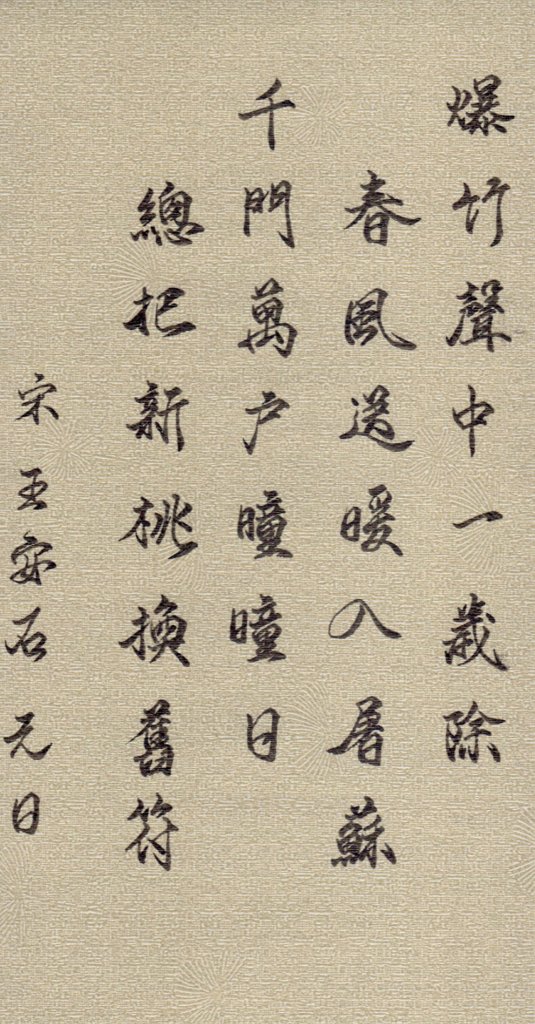 爆竹聲中一歲除
春風送暖入屠蘇
千門萬户曈曈日
總把新桃換舊符
宋王安石 元日